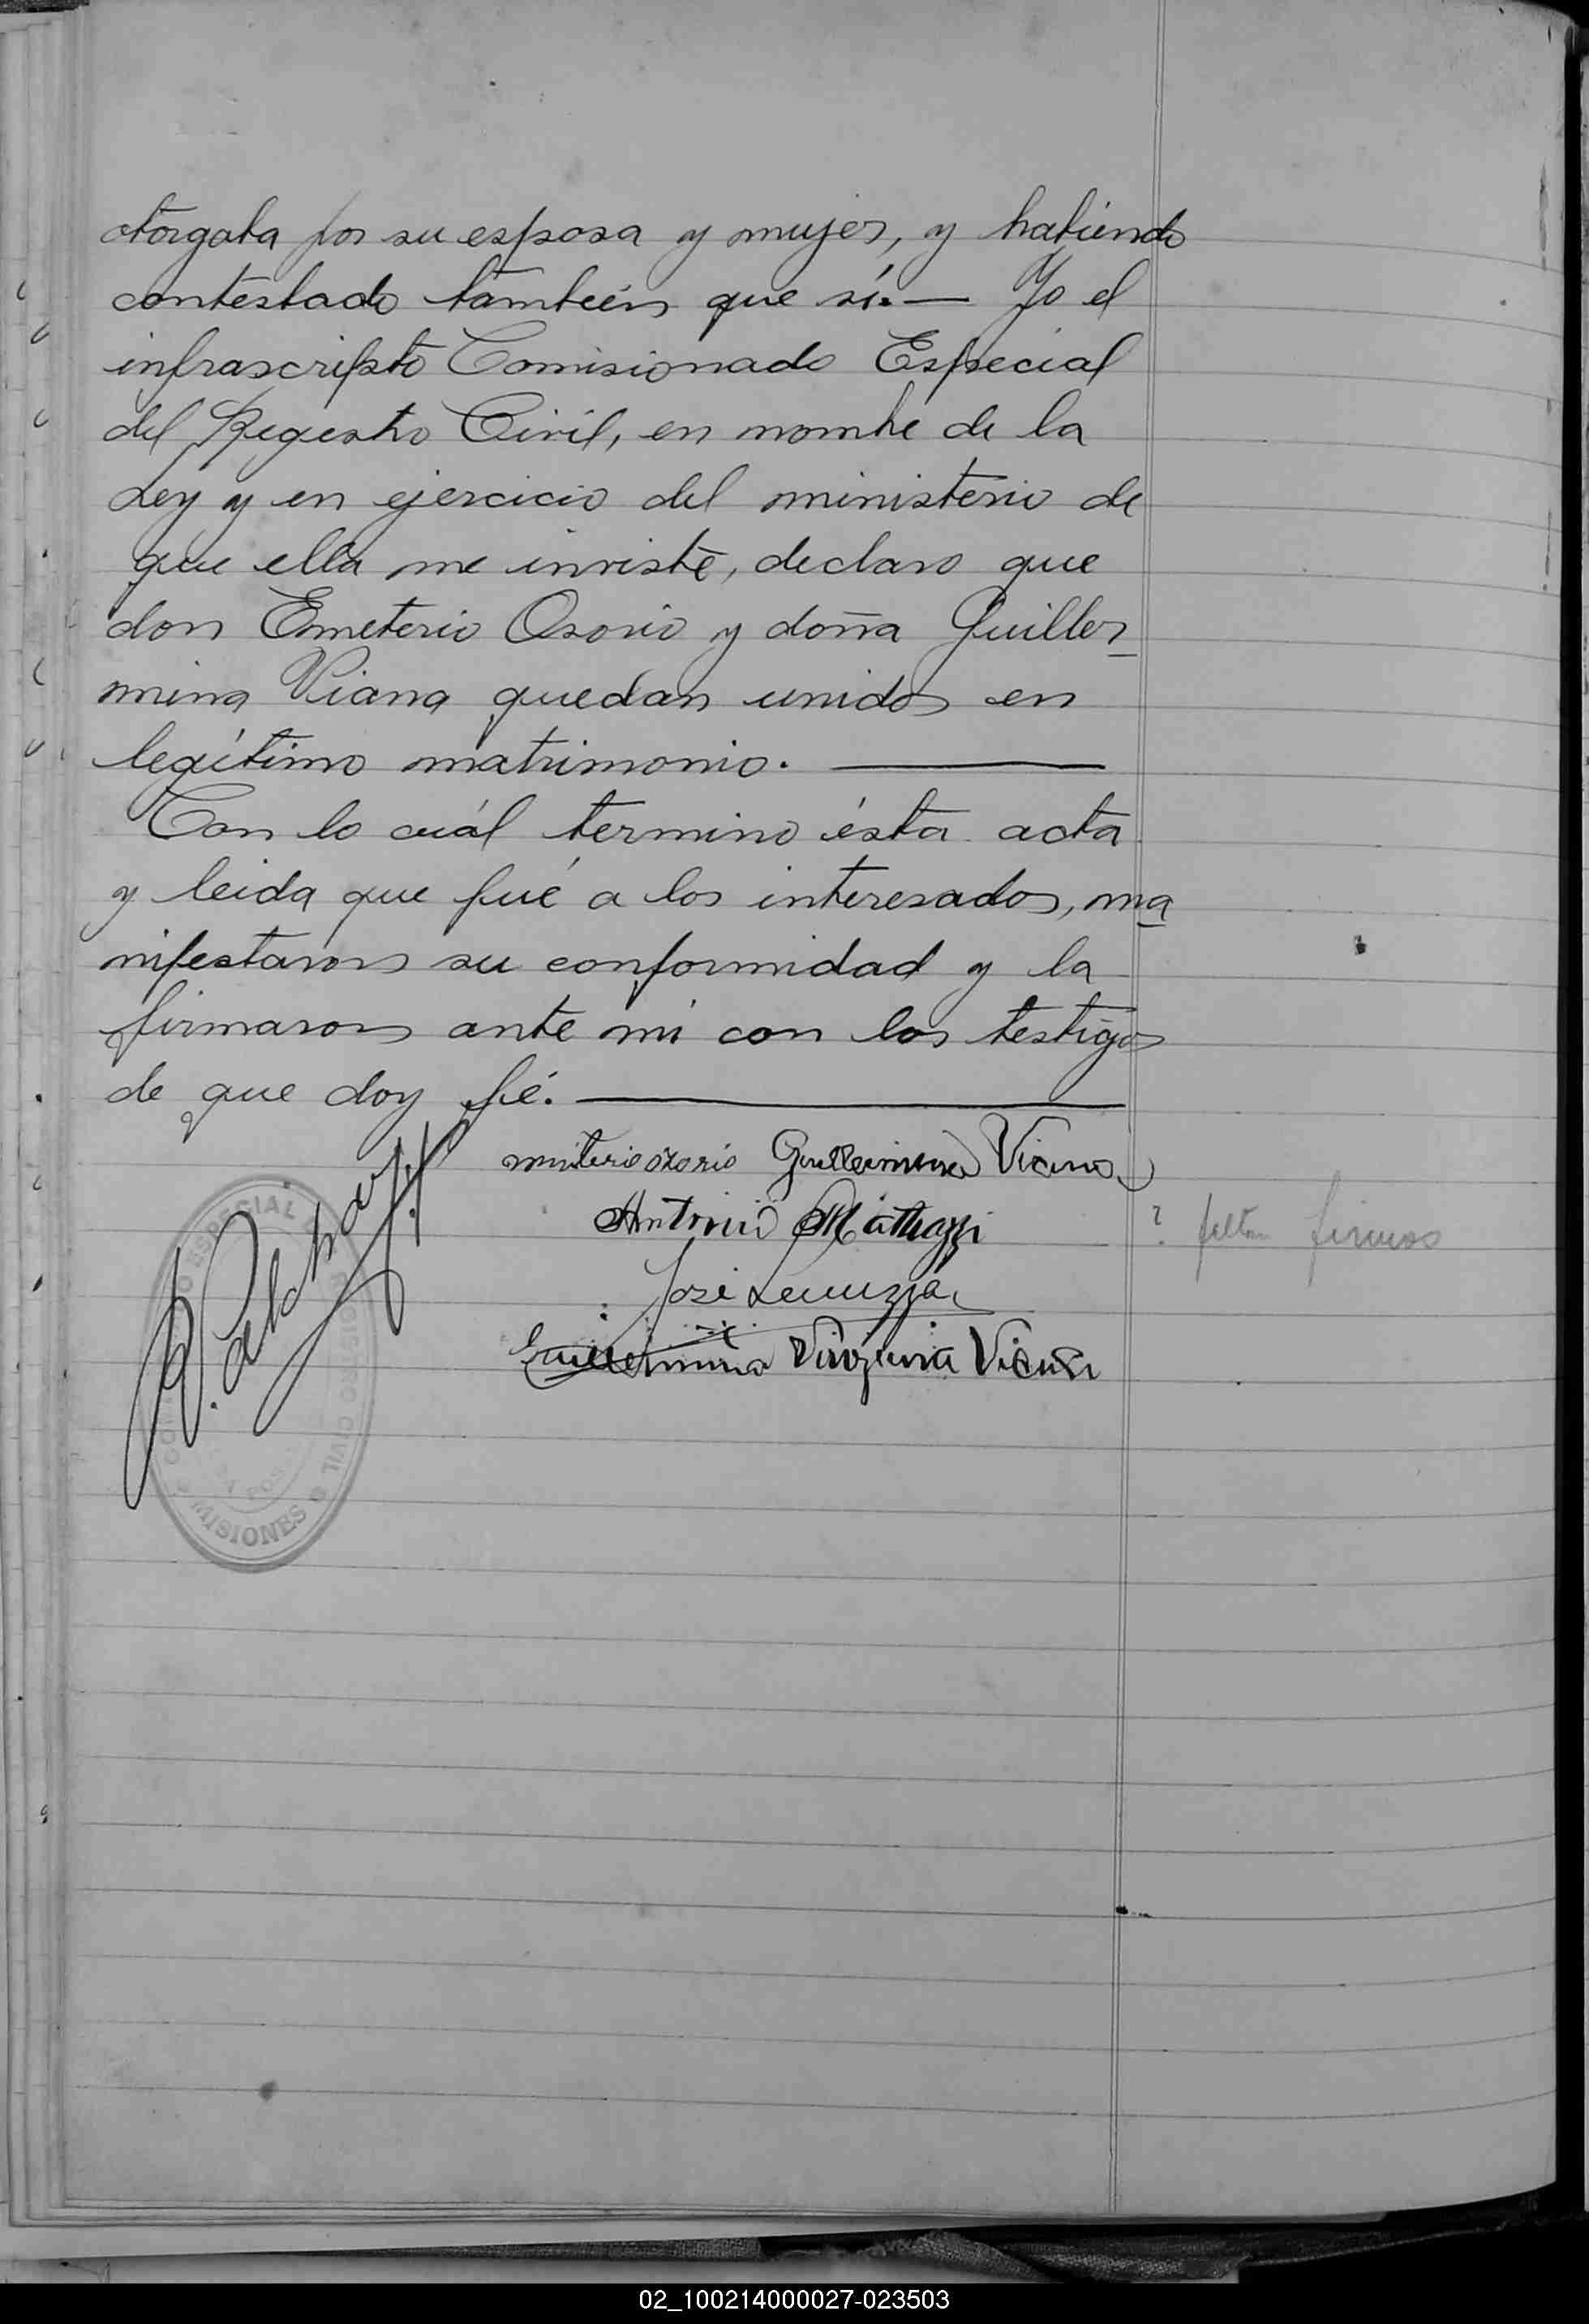 otorgaba por su esposa y mujer, y habiendo
contestado también que sí.— Yo el
infrascripto Comisionado Especial
del Registro Civil, en nombre de la
Ley y en ejercicio del ministerio de
que ella me inviste, declaro que
don Emeterio Osorio y doña Guiller
mina Viana quedan unidos en
legítimo matrimonio.
Con lo cuál termino ésta acta
y leida que fué a los interesados, ma
nifestaron su conformidad y la
firmaron ante mi con los testigos
de que doy fé.
Guillermina Viana
Antonio
? faltan firmas
José
Guillermina Virginia Viana
ESPECIAL
CIVIL
MISIONES
02_100214000027-023503